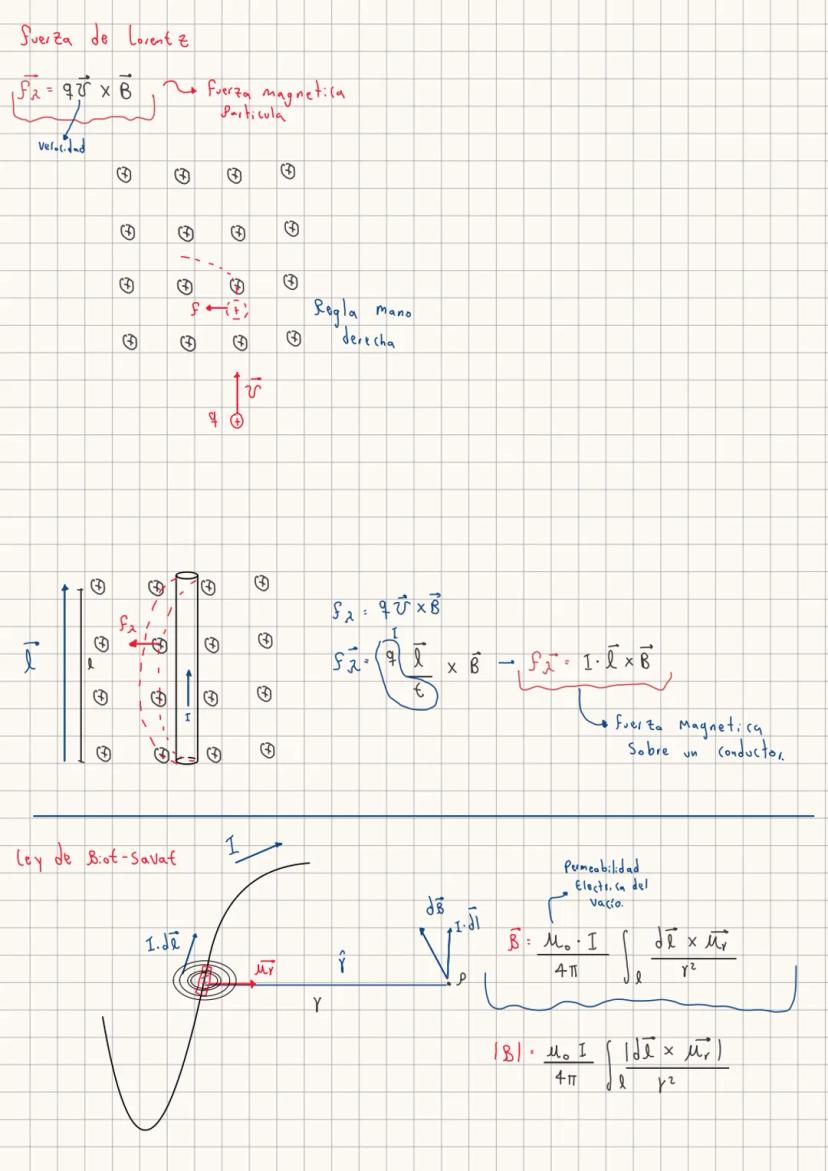 Fuerza de Lorentz
f⃗λ = q v⃗ × B⃗
Fuerza magnetica
Particula
Velocidad
f
Regla mano
derecha
v⃗
q
l⃗
l
fλ
I
fλ = q v⃗ × B⃗
I
f⃗λ = q l⃗/t × B⃗ → f⃗λ = I · l⃗ × B⃗
fuerza Magnetica
Sobre un conductor.
Ley de Biot-Savat
I
I.dl⃗
μ⃗r
r̂
r
dB⃗
I.dl⃗
P
Permeabilidad
Electrica del
Vacio.
B⃗ = μ₀ · I / 4π ∫l dl⃗ × μ⃗r / r²
|B| = μ₀ I / 4π ∫l |dl⃗ × μ⃗r| / r²